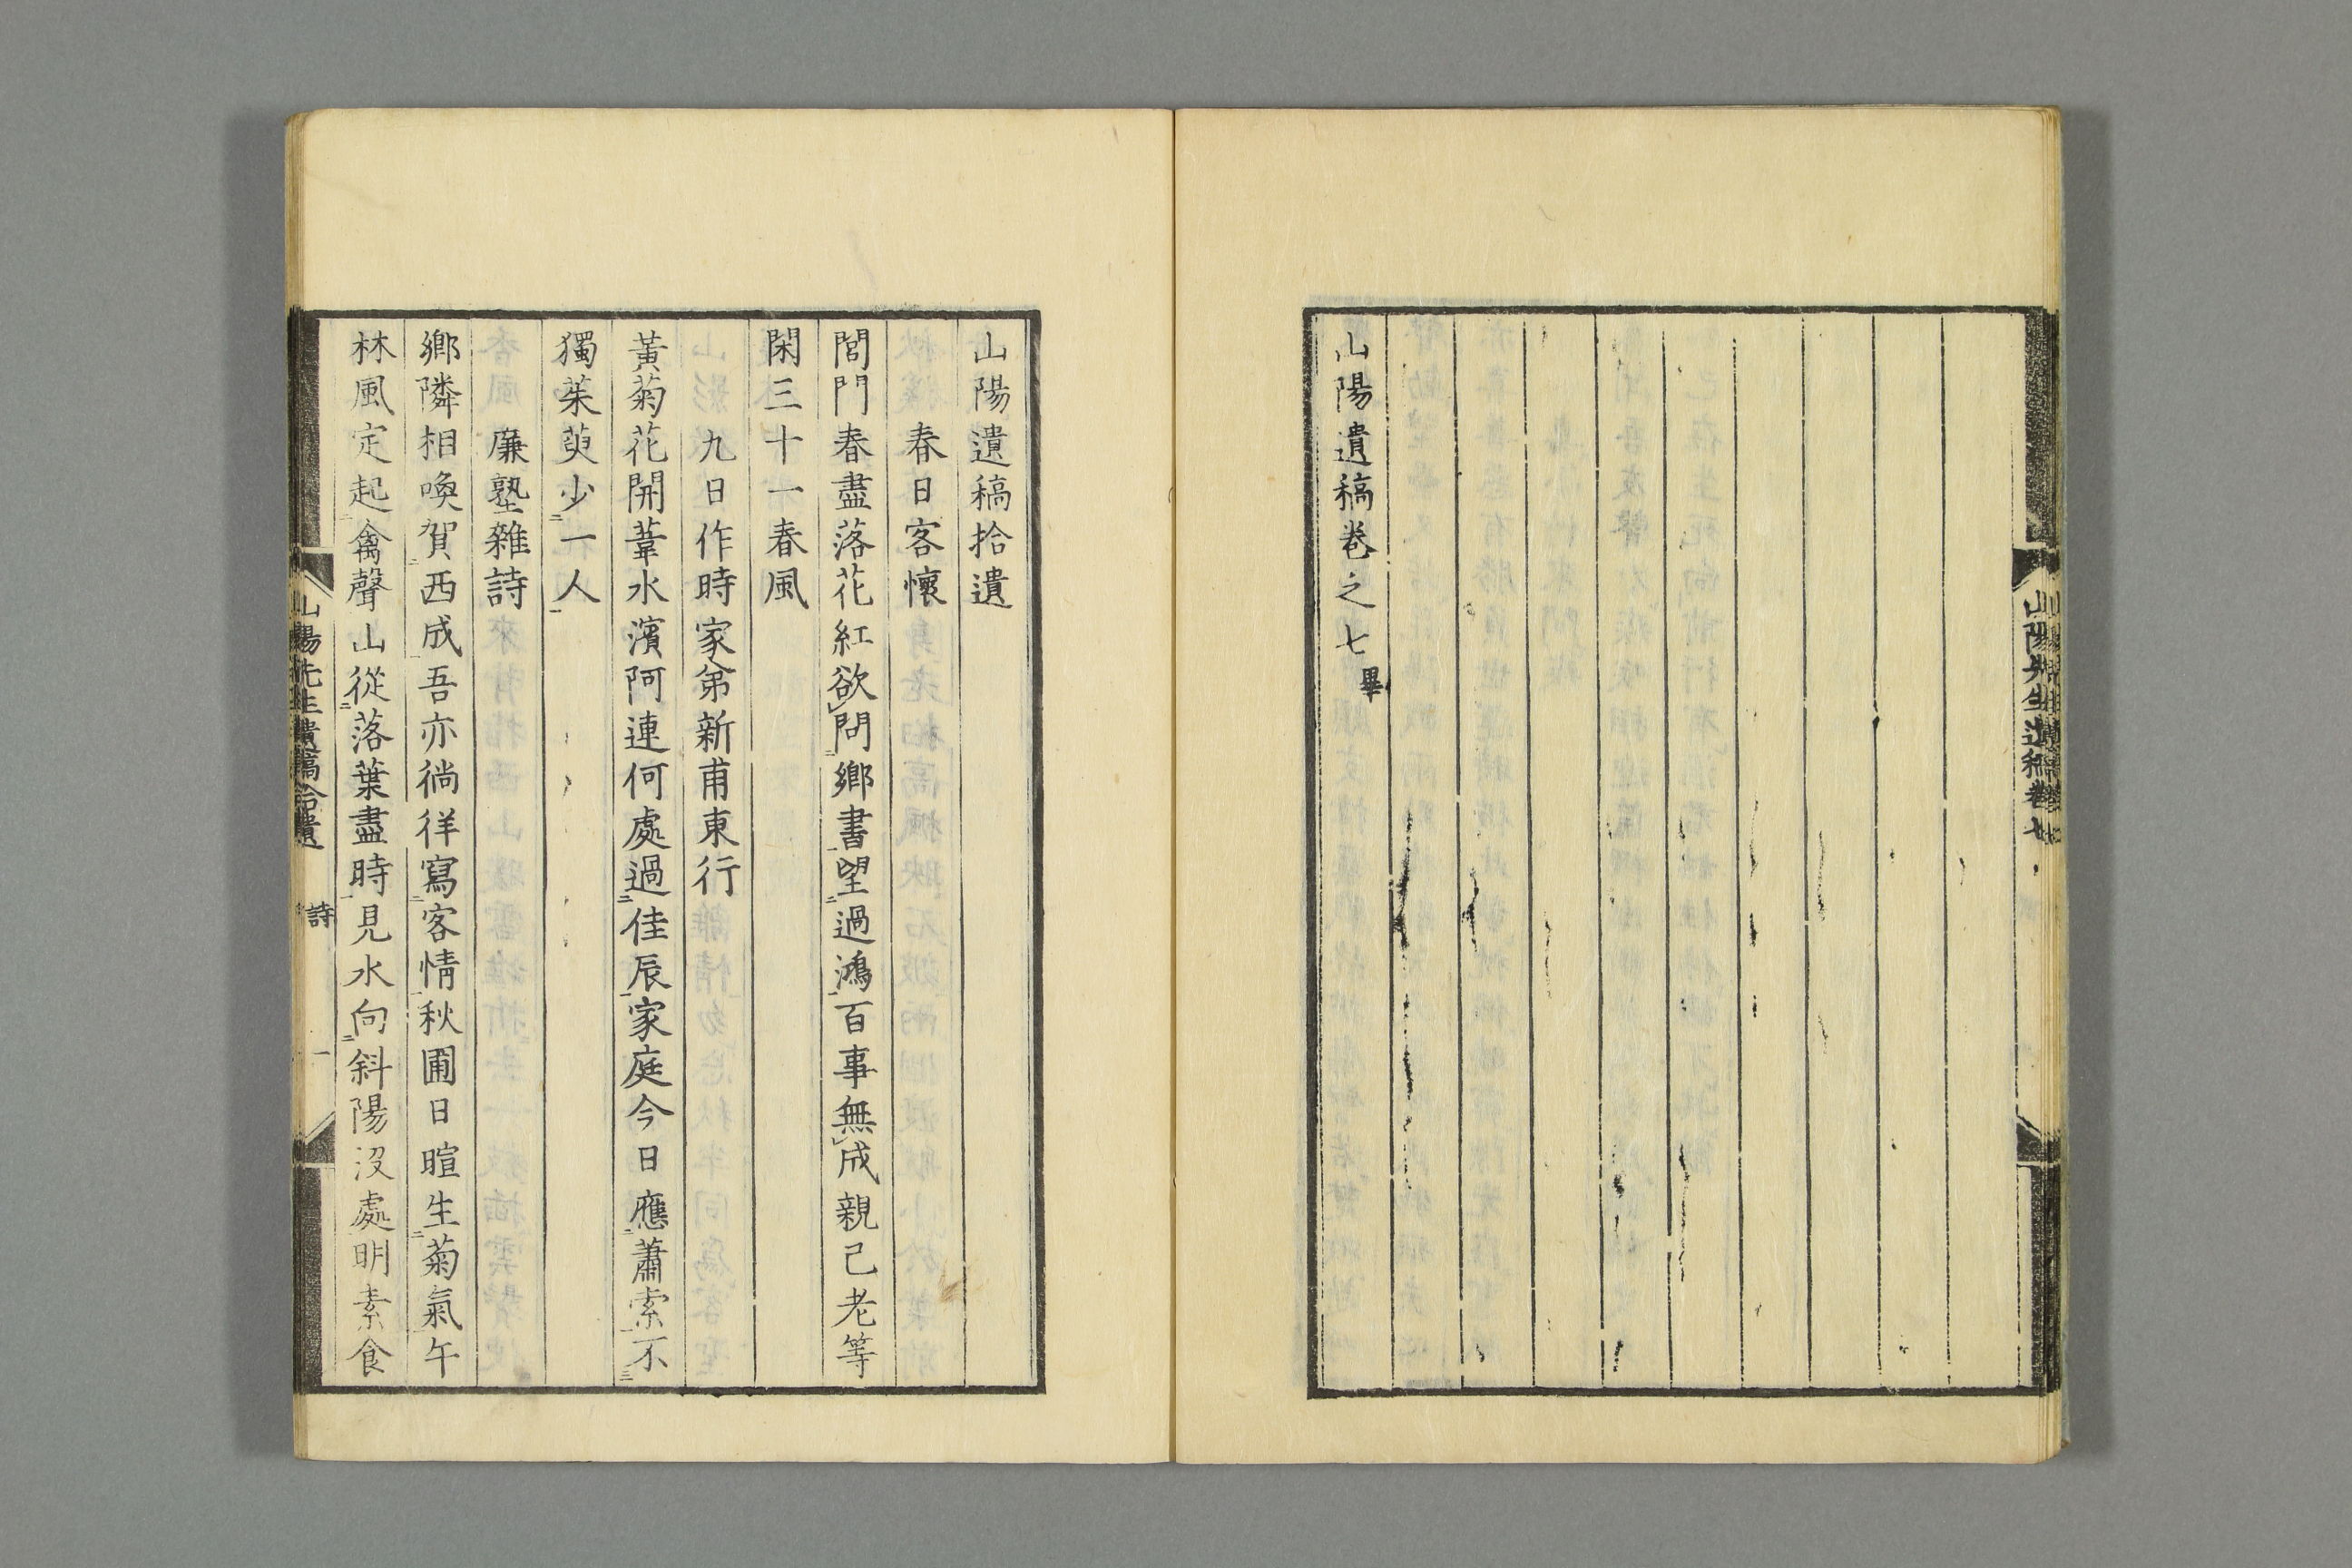 山陽遺稿卷之七畢
山陽遺稿拾遺
春日客懷
閭門春盡落花紅欲問鄉書望過鴻百事無成親已老等
閑三十一春風
九日作時家弟新甫東行
黃菊花開葦水濱阿連何處過佳辰家庭今日應蕭索不
獨茱萸少一人
廉塾雜詩
鄉隣相喚賀西成吾亦徜徉寫客情秋圃日暄生菊氣午
林風定起禽聲山從落葉盡時見水向斜陽沒處明素食
山陽先生遺稿拾遺 詩 一